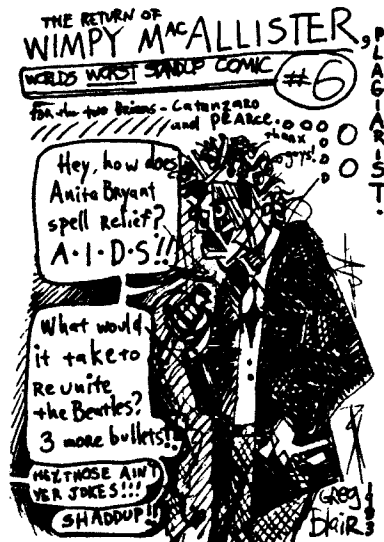 THE RETURN OF
WIMPY MACALLISTER,
PLAGIARIST.
WORLDS WORST STANDUP COMIC
#6
For the two Brians - Catanzaro
and PEARCE.
thanx
guys!
Hey, how does
Anita Bryant
spell relief?
A·I·D·S!!
What would
it take to
Reunite
the Beatles?
3 more bullets!!
HEY, THOSE AIN'T
YER JOKES!!!
SHADDUP!!
GREG
Blair
1983